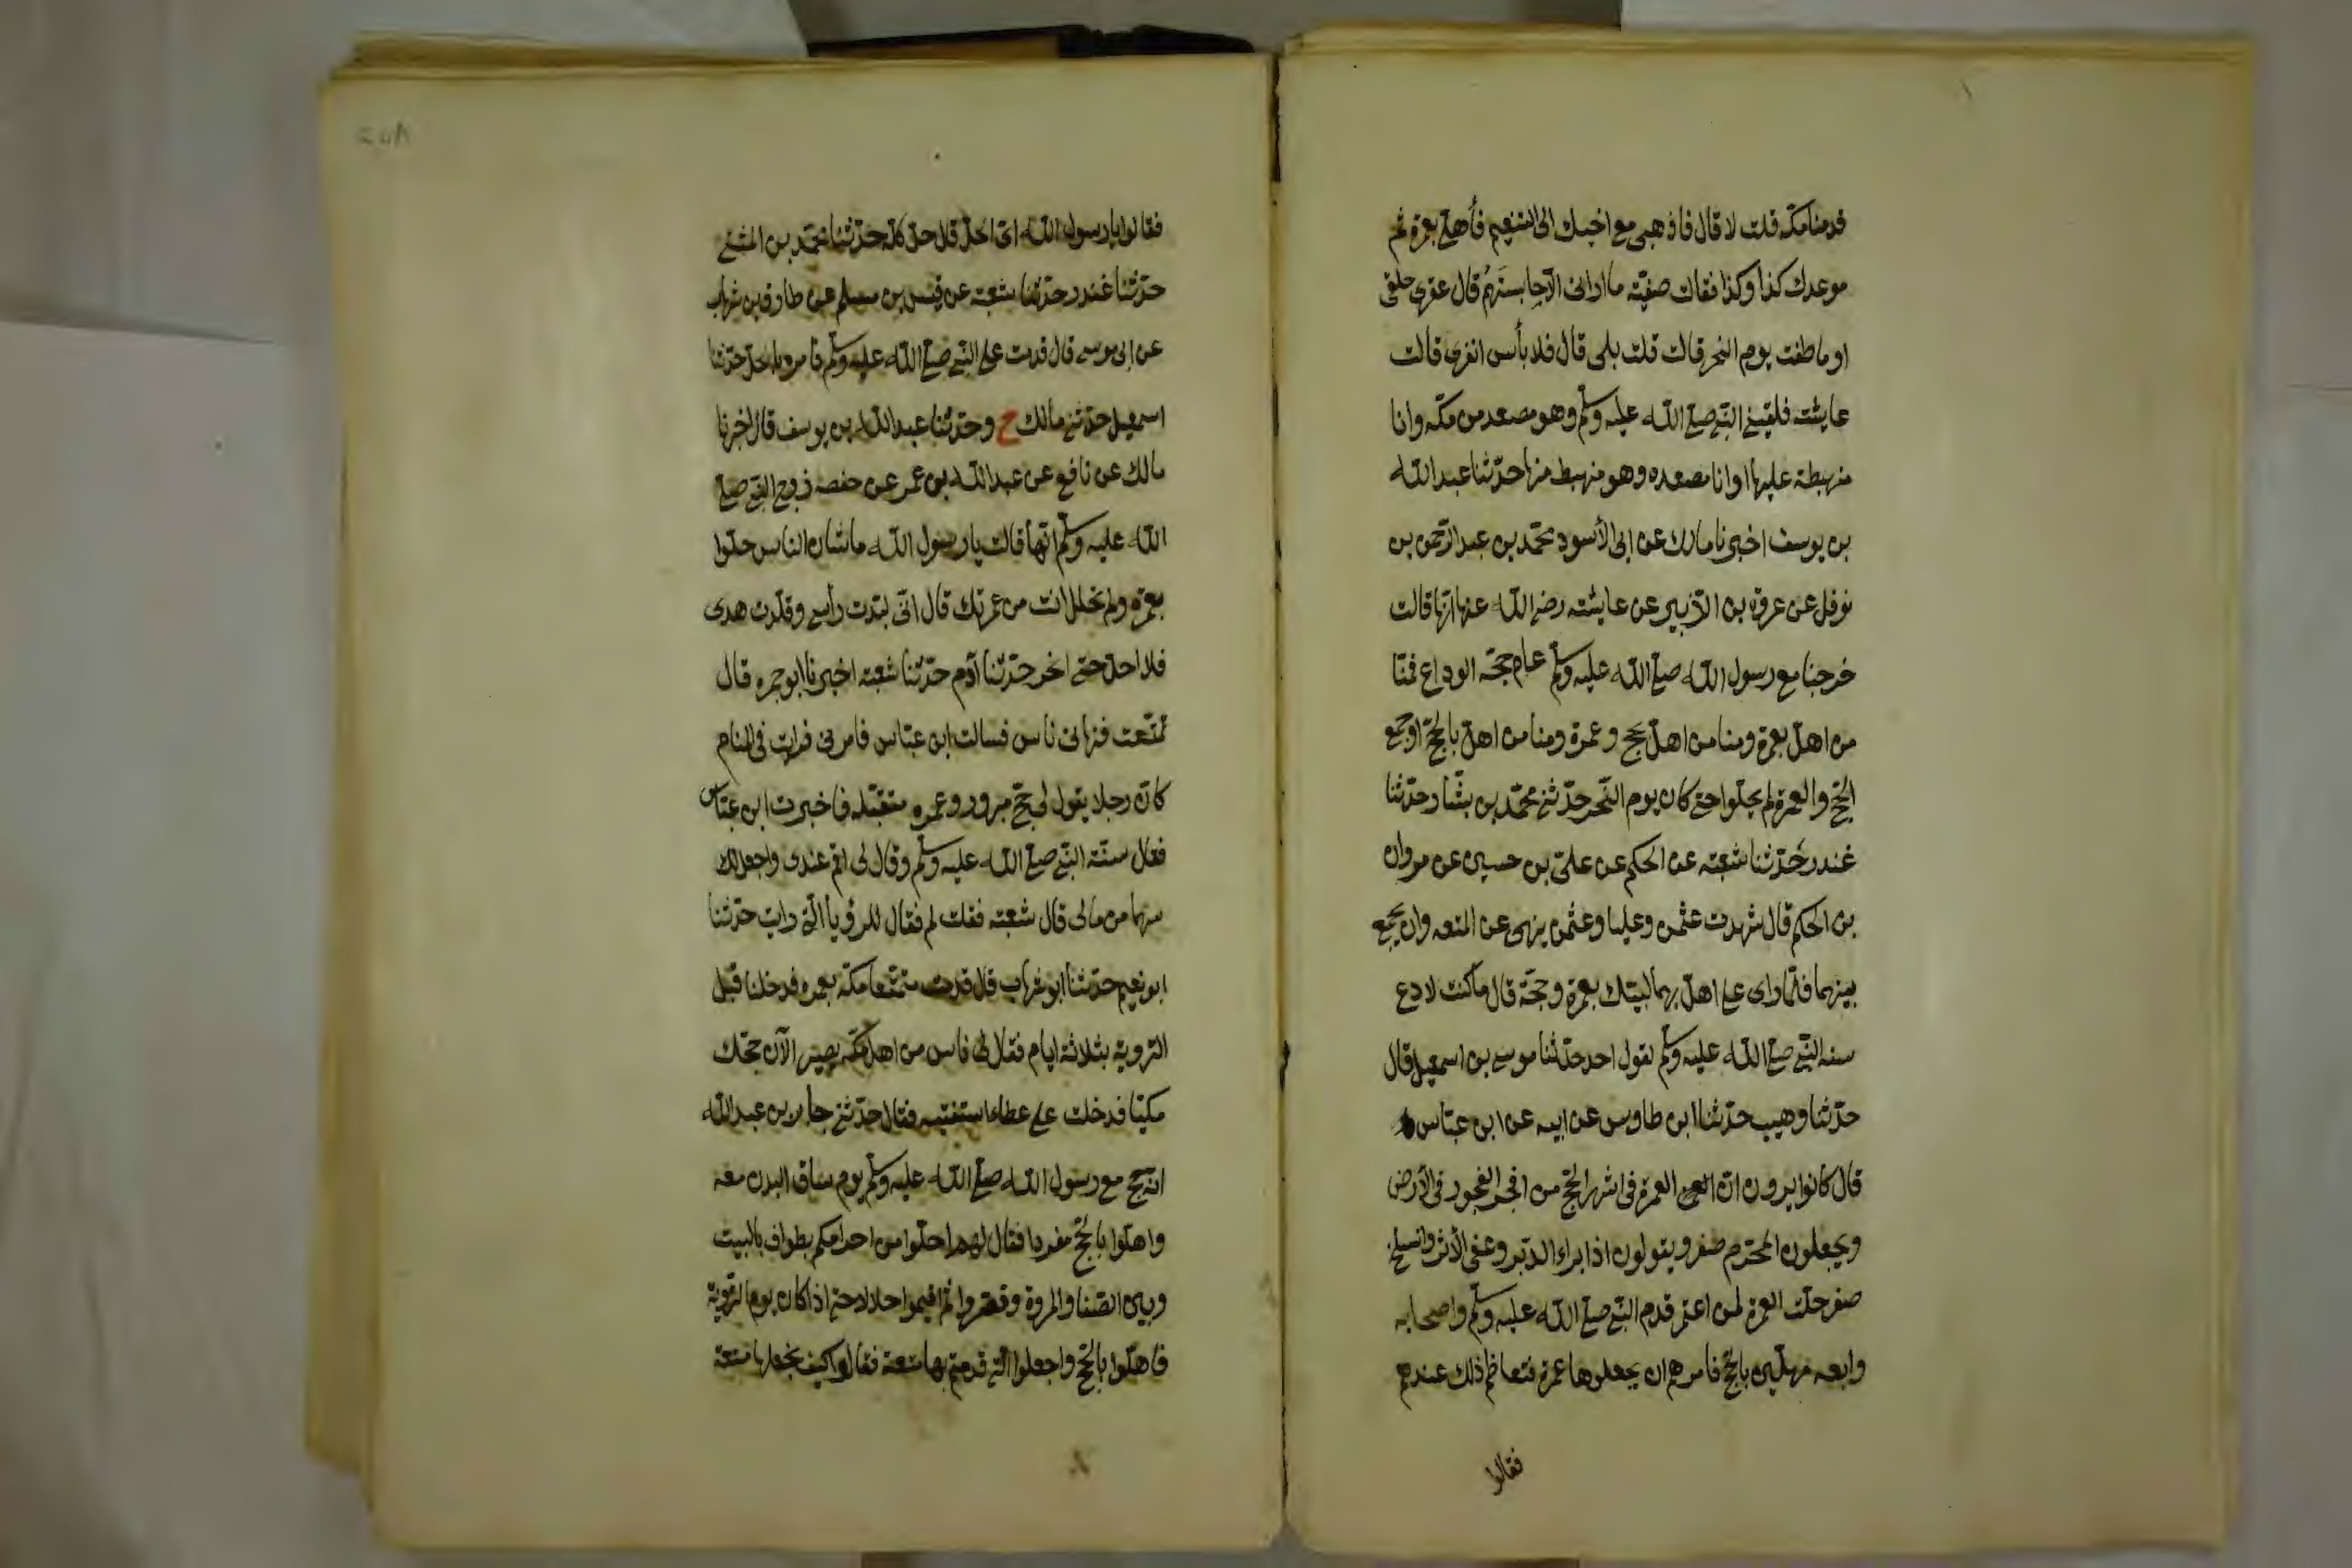 قدمنا مكه قلت لا قال فاذهبى مع اخيك الى التنعيم فأهلى بعمرة ثم
موعدك كذا وكذا فقالت صفيّه ما ارانى الّا حابستهم قال عقرى حلقى
او ما طفت يوم النحر قالت قلت بلى قال فلا بأس انفرى قالت
عايشه فلقينى النّبى صلى اللّه عليه وسلّم وهو مصعد من مكّه وانا
منهبطة عليها او انا مصعده وهو منهبط منها حدّثنا عبد اللّه
بن يوسف اخبرنا مالك عن ابى الأسود محمّد بن عبد الرّحمن بن
نوفل عن عروة بن الزّبير عن عايشه رضى اللّه عنها انّها قالت
خرجنا مع رسول اللّه صلى اللّه عليه وسلّم عام حجّه الوداع فمنّا
من اهلّ بعمرة ومنا من اهلّ بحج وعمرة ومنا من اهلّ بالحجّ او جمع
الحجّ والعمرة لم يحلّوا حتى كان يوم النّحر حدّثنى محمّد بن بشّار حدّثنا
غندر حدّثنا شعبه عن الحكم عن علىّ بن حسين عن مروان
بن الحكم قال شهدت عثمن وعليا وعثمن ينهى عن المتعه وان يجمع
بينهما فلمّا راى على اهلّ بهما لبيّك بعمرة وحجّة قال ما كنت لادع
سنه النّبى صلى اللّه عليه وسلّم لقول احد حدّثنا موسى بن اسمعيل قال
حدّثنا وهيب حدّثنا ابن طاوس عن ابيه عن ابن عبّاس
قال كانوا يرون انّ العمرة فى اشهر الحجّ من افجر الفجور فى الأرض
ويجعلون المحرّم صفر ويقولون اذا براء الدّبر وعفى الأثر وانسلخ
صفر حلّت العمرة لمن اعتمر قدم النّبى صلى اللّه عليه وسلّم واصحابه
رابعه مهلّين بالحجّ فامرهم ان يجعلوها عمرة فتعاظم ذلك عندهم
فقالوا
فقالوا يا رسول اللّه اىّ الحلّ قال حلّ كلّه حدّثنا محمّد بن المثنى
حدّثنا غندر حدّثنا شعبه عن قيس بن مسلم عن طارق بن شهاب
عن ابى موسى قال قدمت على النّبى صلى اللّه عليه وسلّم فامره بالحلّ حدّثنا
اسمعيل حدّثنى مالك ح وحدّثنا عبد اللّه بن يوسف قال اخبرنا
مالك عن نافع عن عبد اللّه بن عمر عن حفصه زوج النّبى صلى
اللّه عليه وسلّم انّها قالت يا رسول اللّه ما شان الناس حلّوا
بعمرة ولم تحلل انت من عمرتك قال انّى لبّدت رأسى وقلّدت هدى
فلا احلّ حتى انحر حدّثنا آدم حدّثنا شعبه اخبرنا ابو جمره قال
تمتّعت فنهانى ناس فسالت ابن عبّاس فامرنى فرايت فى المنام
كانّ رجلا يقول لى حجّ مبرور وعمره متقبّله فاخبرت ابن عبّاس
فقال سنّة النّبى صلى اللّه عليه وسلّم وقال لى اقم عندى واجعل لك
سهما من مالى قال شعبه فقلت لم فقال للرؤيا الّتى رايت حدّثنا
ابو نعيم حدّثنا ابو شهاب قال قدمت متمتّعا مكّه بعمره فدخلنا قبل
التروية بثلاثة ايام فقال لى ناس من اهل مكّه يصير الآن حجّك
مكيّا فدخلت على عطاء استفتيه فقال حدّثنى جابر بن عبد اللّه
انّه حج مع رسول اللّه صلى اللّه عليه وسلّم يوم ساق البدن معه
واهلّوا بالحجّ مفردا فقال لهم احلّوا من احرامكم بطواف بالبيت
وبين الصّفا والمروة وقصّروا ثم اقيموا حلالا حتى اذا كان يوم التّروية
فاهلّوا بالحجّ واجعلوا الّتى قدمتم بها متعة فقالوا كيف نجعلها متعة